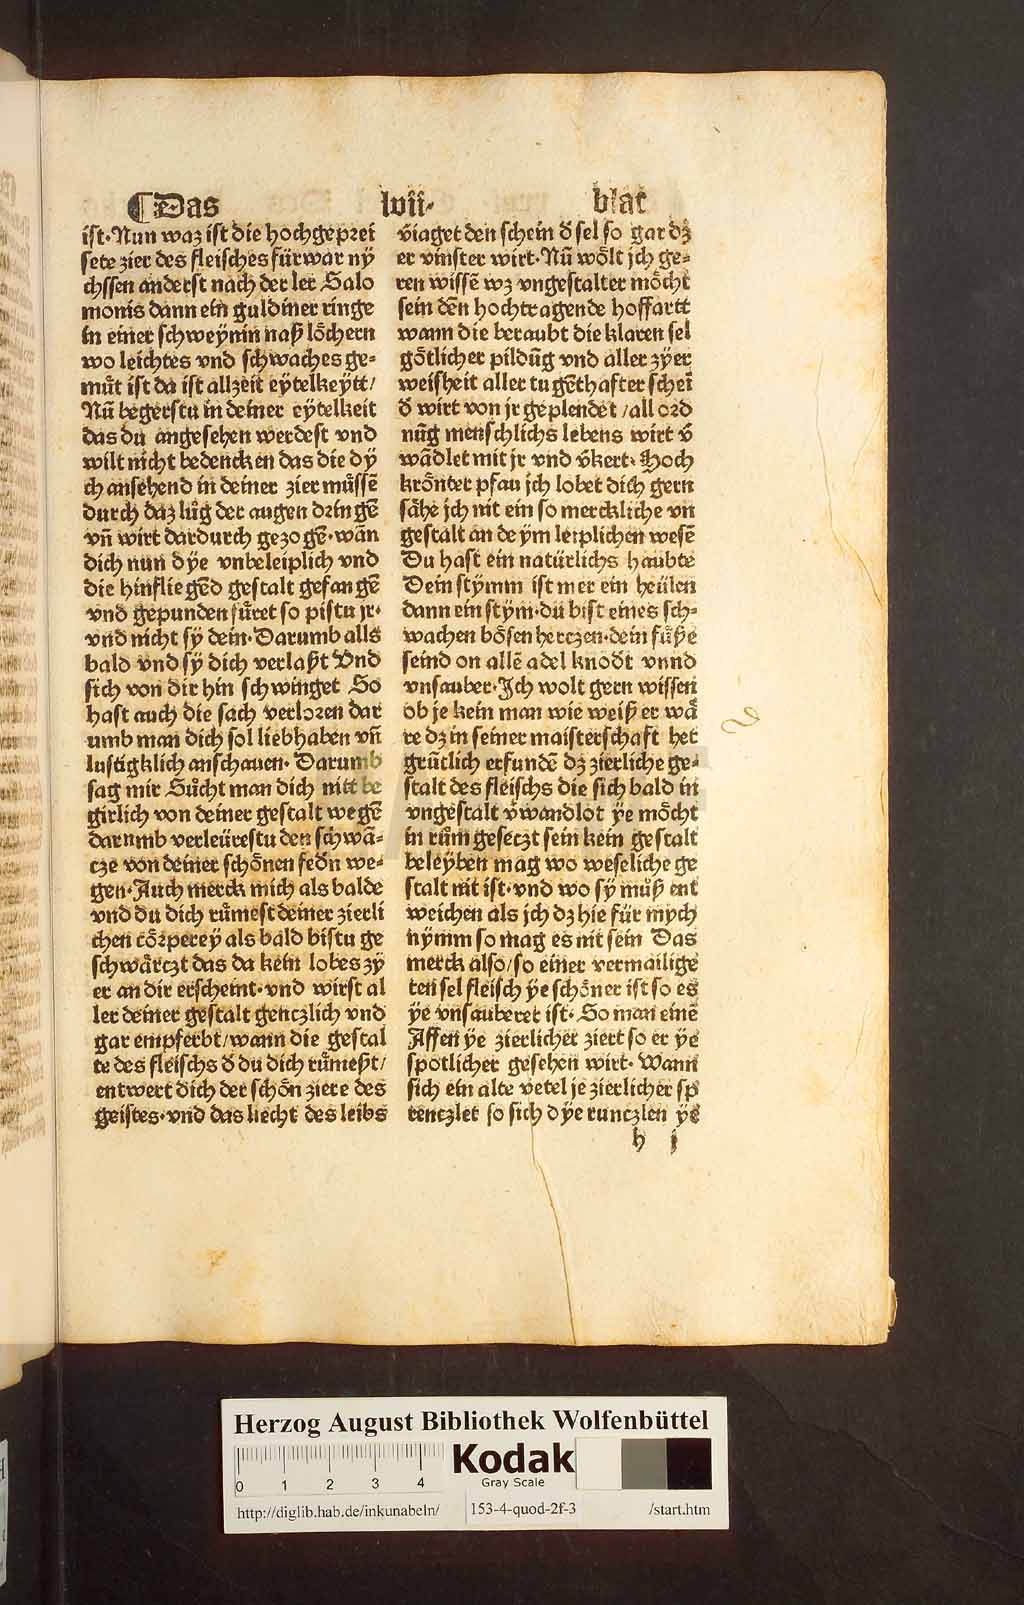 ¶Das lvii· blat
ist·Nun waz ist die hochgeprei
sete zier des fleisches fürwar nÿ
chssen anderst nach der ler Salo
monis dann ein guldiner ringe
in einer schweÿnin naß löchern
wo leichtes vnd schwaches ge⸗
můt ist da ist allzeit eÿtelkeÿtt/
Nū begerstu in deiner eÿtelkeit
das du angesehen werdest vnd
wilt nicht bedencken das die dÿ
ch ansehend in deiner zier můssē
durch daz lůg der augen dringē
vn̄ wirt dardurch gezogē·wān
dich nun dÿe vnbeleiplich vnd
die hinfliegēd gestalt gefangē
vnd gepunden fůret so pistu jr·
vnd nicht sÿ dein·Darumb alls
bald vnd sÿ dich verlaßt Vnd
sich von dir hin schwinget So
hast auch die sach verloren dar
umb man dich sol liebhaben vn̄
lustigklich anschauen· Darumb
sag mir Sůcht man dich nitt be
girlich von deiner gestalt wegē
darumb verleürestu den schwā⸗
cze von deiner schönen fedn̄ we⸗
gen·Auch merck mich als balde
vnd du dich růmest deiner zierli
chen cörpereÿ als bald bistu ge
schwärczt das da kein lobes zÿ
er an dir erscheint·vnd wirst al
ler deiner gestalt genczlich vnd
gar empferbt/wann die gestal
te des fleischs d̄ du dich růmeßt/
entwert dich der schön ziere des
geistes·vnd das liecht des leibs
v̄iaget den schein d̄ sel so gar dz
er vinster wirt·Nū wölt jch ge⸗
ren wissē wz vngestalter möcht
sein dēn hochtragende hoffartt
wann die beraubt die klaren sel
götlicher pildūg vnd aller zÿer
weisheit aller tugēthafter schei
d̄ wirt von jr geplendet/all ord
nūg menschlichs lebens wirt v̄
wādlet mit jr vnd v̄kert· Hoch
krönter pfau jch lobet dich gern
sähe jch nit ein so merckliche vn
gestalt an deÿm leiplichen wesē
Du hast ein natürlichs haubte
Dein stÿmm ist mer ein heülen
dann ein stÿm·du bist eines sch⸗
wachen bösen herczen·dein fůße
seind on allē adel knödt vnnd
vnsauber·Jch wolt gern wissen
ob je kein man wie weiß er wä
re dz in seiner maisterschaft het
grütlich erfundē dz zierliche ge⸗
stalt des fleischs die sich bald in
vngestalt v̄wandlot ÿe möcht
in rům geseczt sein kein gestalt
beleÿben mag wo weseliche ge
stalt nit ist·vnd wo sÿ můß ent
weichen als jch dz hie für mych
nÿmm so mag es nit sein Das
merck also/so einer vermailige
ten sel fleisch ÿe schöner ist so es
ÿe vnsauberer ist· So man einē
Affen ÿe zierlicher ziert so er ÿe
spotlicher gesehen wirt· Wann
sich ein alte vetel je zierlicher sp
renczlet so sich dÿe runczlen ÿe
h j
Herzog August Bibliothek Wolfenbüttel
0 1 2 3 4
Kodak
Gray Scale
http://diglib.hab.de/inkunabeln/ 153-4-quod-2f-3 /start.htm